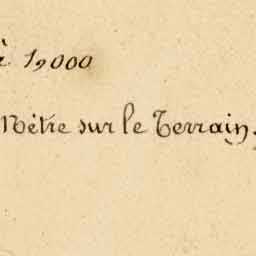 à 1,000
Mètre sur le Terrain.